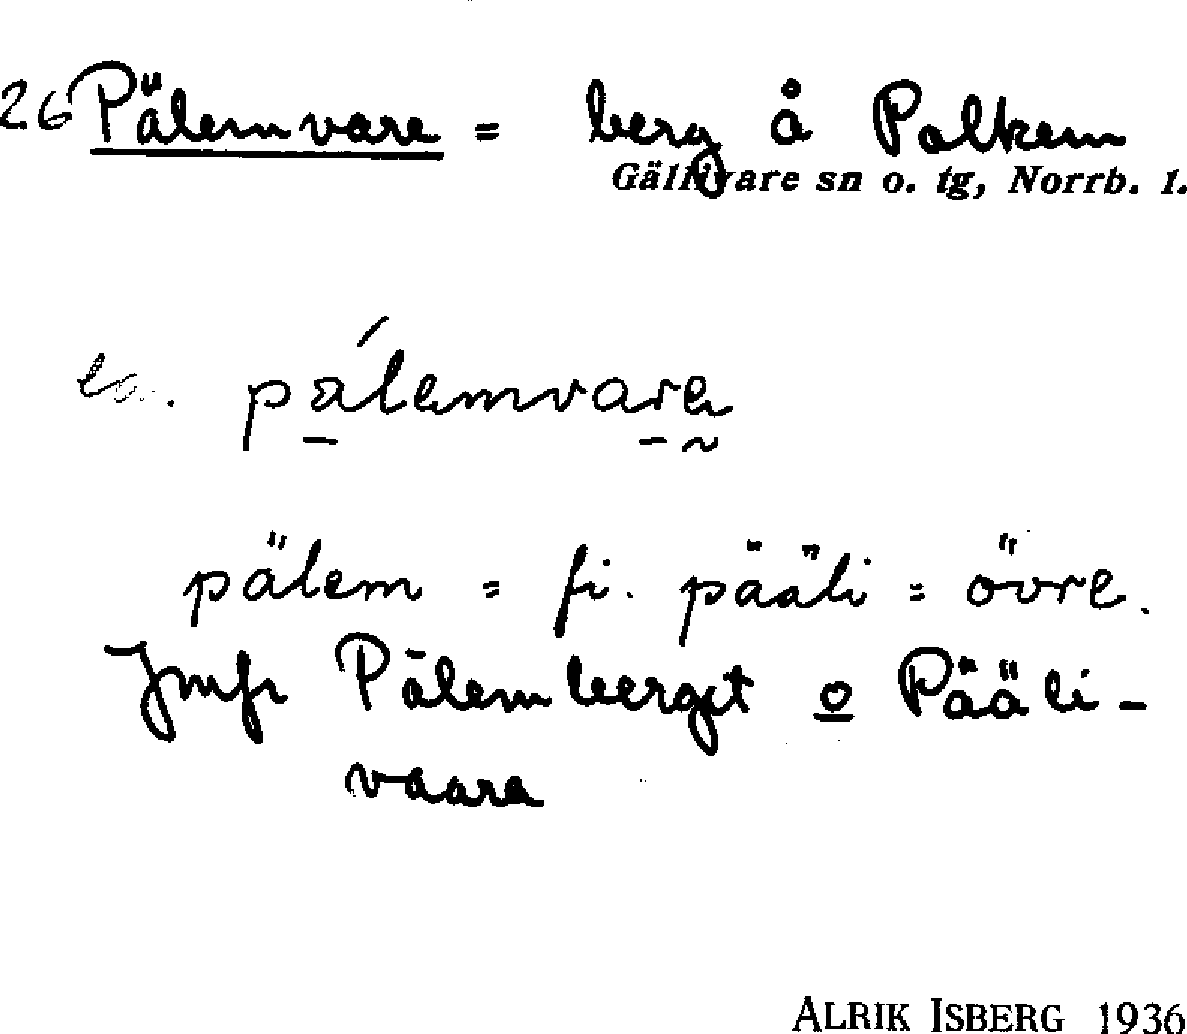 26 Pälemvare = berg å Polkem
Gällivare sn o. tg, Norrb. l.
pálemvare
pälem = fi. pääli = övre.
Jmfr Pälemberget o Pääli-
vaara
ALRIK ISBERG 1936